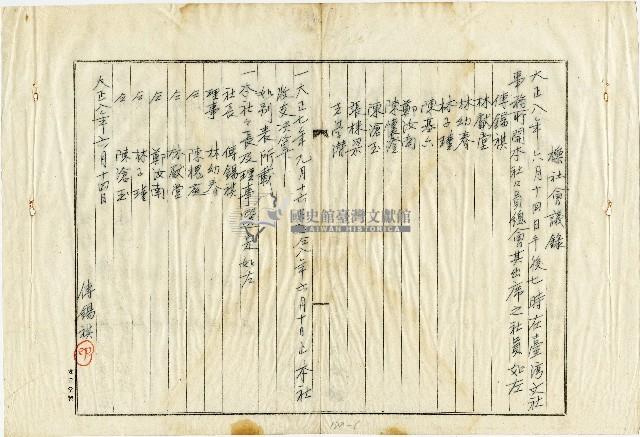 櫟社會議錄
大正八年六月十四日午後七時在臺湾文社
事務所開本社社員總會其出席之社員如左
傅錫祺
林獻堂
林幼春
林子瑾
陳基六
鄭汝南
陳懷澄
陳滄玉
張棟梁
王學潛
一大正七年九月十
仝八年六月十日止本社
收支决算
如別表所載
一本社社長及理事
如左
社長 傅錫祺
理事 林幼春
仝 陳槐庭
仝 林獻堂
仝 鄭汝南
仝 林子瑾
仝 陳滄玉
大正八年六月十四日
傅錫祺 印
國史館臺灣文獻館
TAIWAN HISTORICA